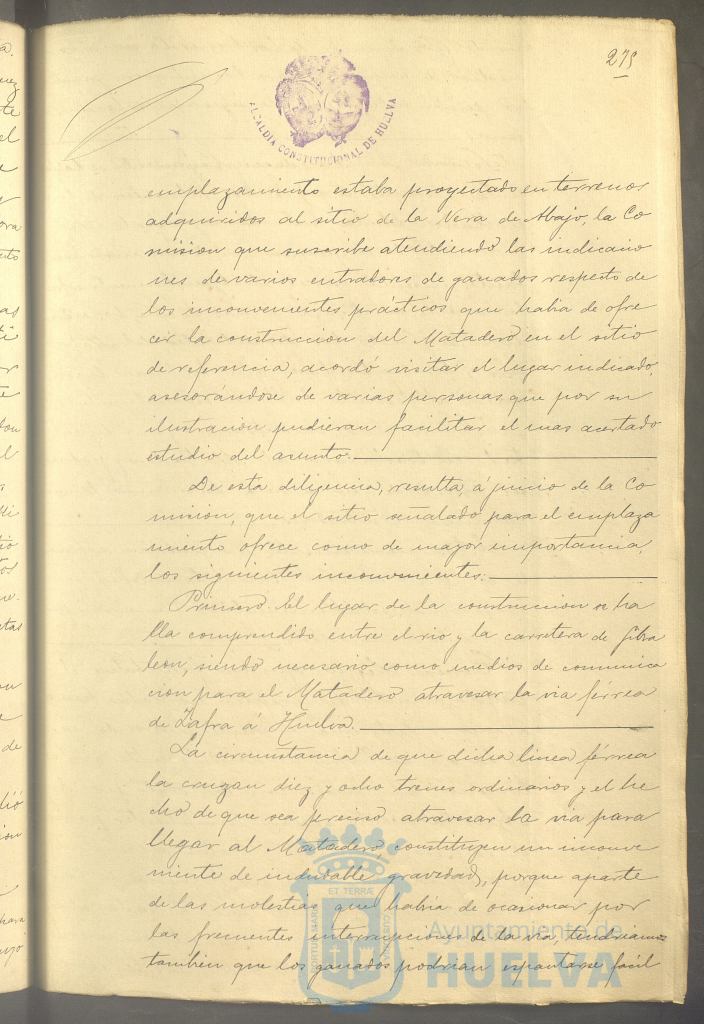 275
ALCALDIA CONSTITUCIONAL DE HUELVA
emplazamiento estaba proyectado en terrenos
adquiridos al sitio de la Vera de Abajo, la Co
mision que suscribe atendiendo las indicacio
nes de varios entradores de ganados respecto de
los inconvenientes prácticos que habia de ofre
cer la construccion del Matadero en el sitio
de referencia, acordó visitar el lugar indicado,
asesorándose de varias personas que por su
ilustración pudieran facilitar el mas acertado
estudio del asunto.
De esta diligencia, resulta, á juicio de la Co
mision, que el sitio señalado para el emplaza
miento ofrece como de mayor importancia,
los siguientes inconvenientes:
Primero. El lugar de la construccion se ha
lla comprendido entre el rio y la carretera de Gibra
leon, siendo necesario como medios de comunica
cion para el Matadero atravesar la via férrea
de Zafra á Huelva.
La circunstancia de que dicha linea férrea
la cruzan diez y ocho trenes ordinarios y el he
cho de que sea preciso atravesar la via para
llegar al Matadero constituyen un inconve
niente de indudable gravedad, porque aparte
de las molestias que habia de ocasionar por
las frecuentes interrupciones de la via, tendriamos
tambien que los ganados podrian espantarse facil
Ayuntamiento de
HUELVA